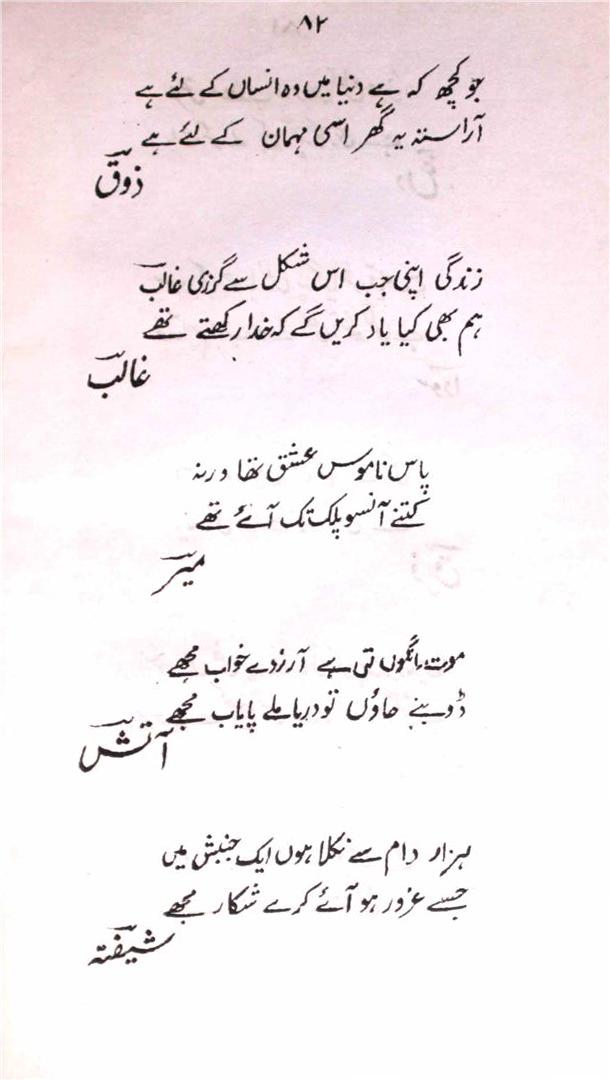 ۸۲
جو کچھ کہ ہے دنیا میں وہ انساں کے لئے ہے
آراستہ یہ گھر اسی مہمان کے لئے ہے
ذوقؔ
زندگی اپنی جب اس شکل سے گزری غالبؔ
ہم بھی کیا یاد کریں گے کہ خدا رکھتے تھے
غالبؔ
پاس ناموس عشق تھا ورنہ
کتنے آنسو پلک تک آئے تھے
میرؔ
موت مانگوں تی ہے آرزدے خواب مجھے
ڈوبنے جاؤں تو دریا ملے پایاب مجھے
آتشؔ
ہزار دام سے نکلا ہوں ایک جنبش میں
جسے غرور ہو آئے کرے شکار مجھے
شیفتہؔ